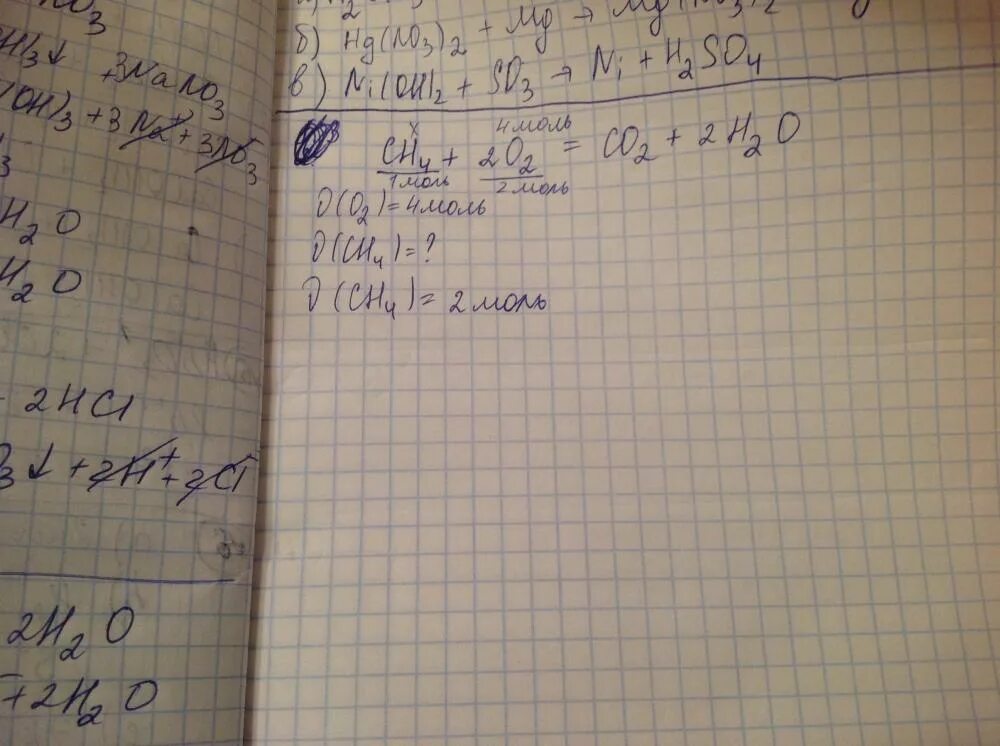 NO3
H)3↓ +3NaNO3
(OH)3 + 3Na+ + 3NO3
3
H2O
H2O
2HCl
3↓ + 2H+ + 2Cl
2H2O
+2H2O
б) Hg(NO3)2 + Mg → Mg(NO3)2
в) Ni(OH)2 + SO3 → Ni + H2SO4
x 4моль
CH4 + 2O2 = CO2 + 2H2O
1моль 2моль
D(O2)=4моль
D(CH4)=?
D(CH4)=2моль